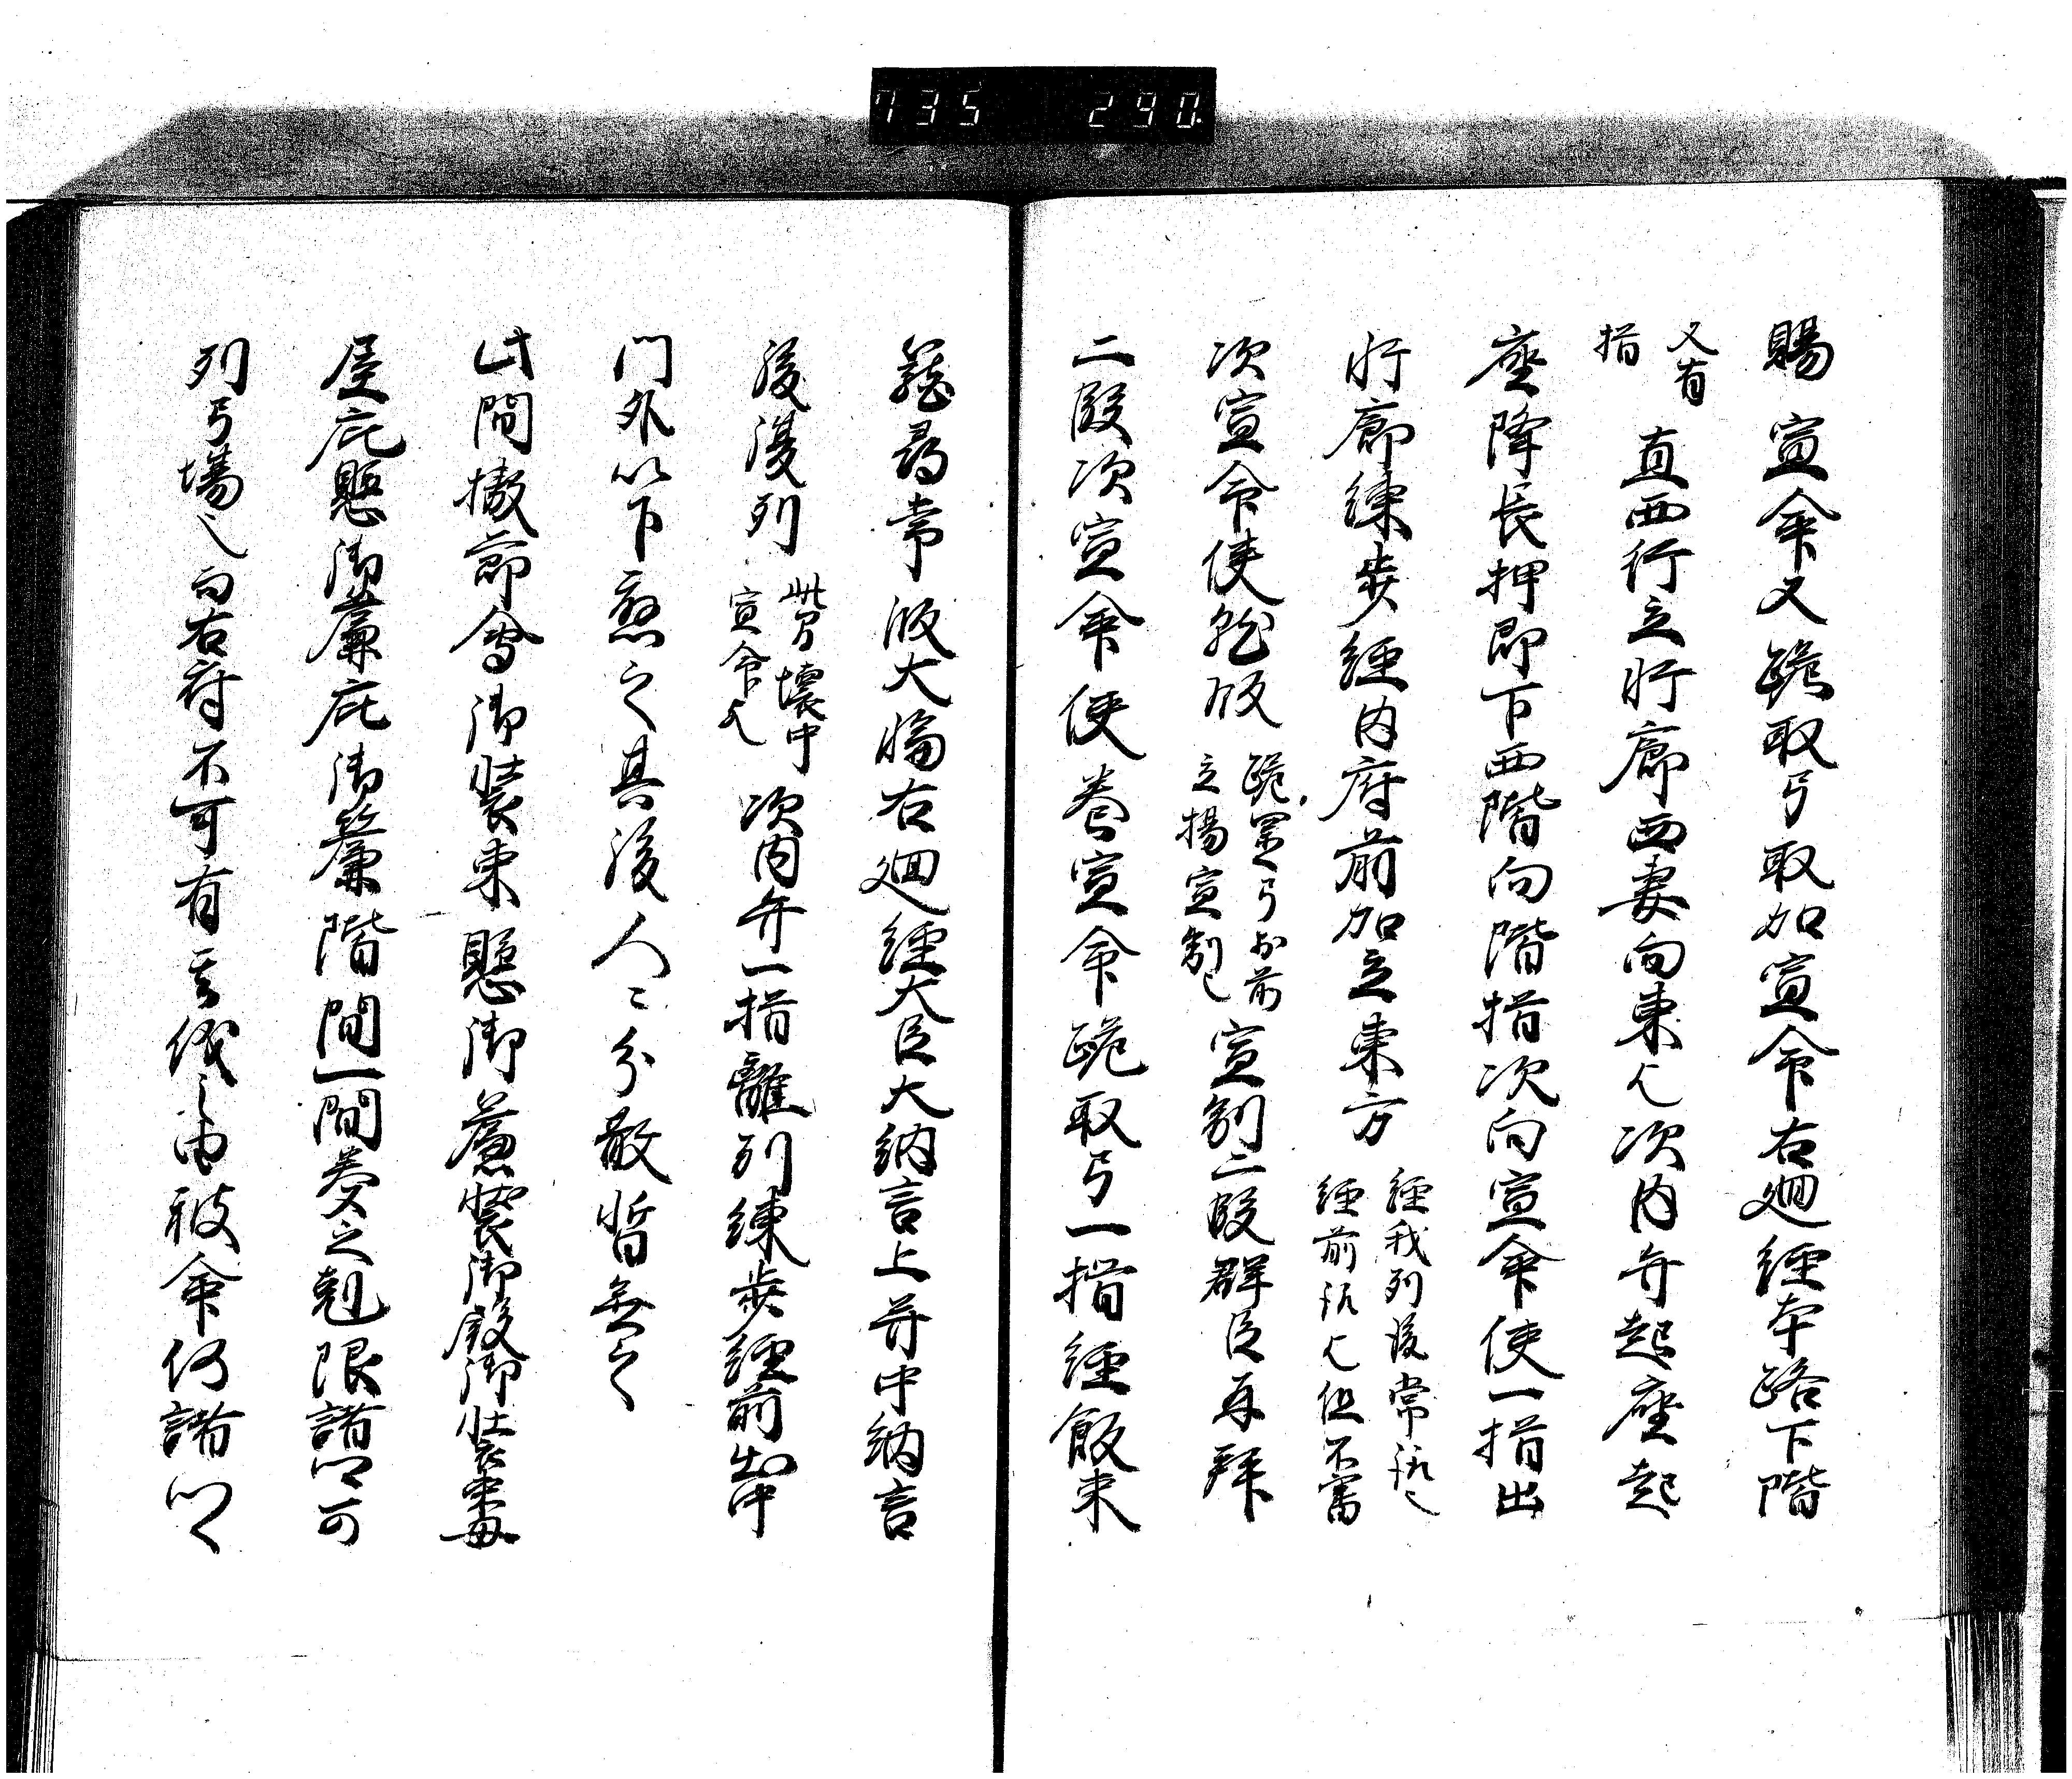 735 290
賜宣命又跪取弓取加宣命右廻經本路下階
又有揖直西行立軒廊西妻向東也次内弁起座起
座降長押即下西階向階揖次向宣命使一揖出
軒廊練歩經内府前加立東方經我列後常説也經前説也但不審
次宣命使就版跪置弓於前立揚宣制也宣制二段群臣再拜
二段次宣命使巻宣命跪取弓一揖經版東
尋常版大臨右廻經大臣大納言上并中納言
後復列此間懐中宣命也次内弁一揖離列練歩經前出中
門外以下應之其後人々分散皆無之
此間撤節會御装束懸御簾装御殿御装束母
屋庇懸御簾庇御簾階間一間巻之剋限諸卿可
列弓場之向右府不可有其儀之由被命仍諸卿